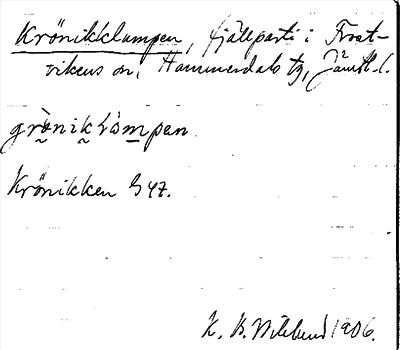 Krönikklumpen, fjällparti i Frost-
vikens sn, Hammerdals tg, Jämtl. l.
grö̀nikklòmpen
Krönikken G 47.
K. B. Wiklund 1906.